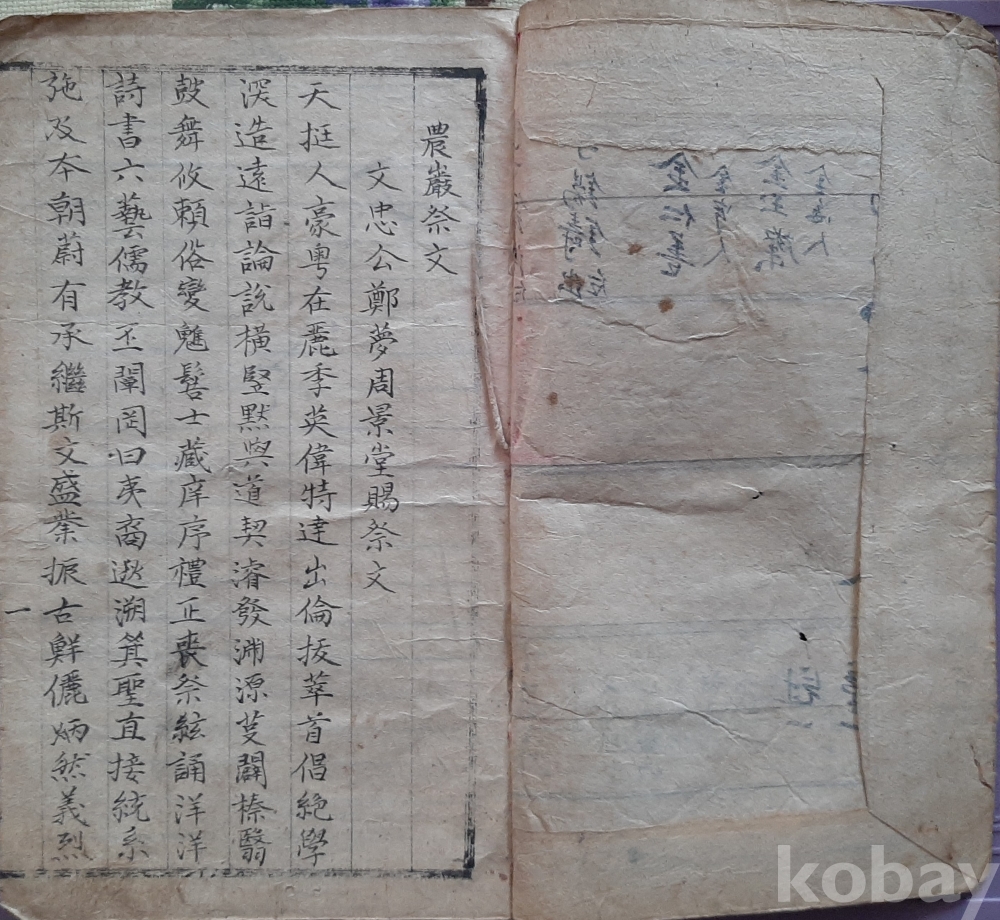 農巖祭文
文忠公鄭夢周景堂賜祭文
天挺人豪粤在麗季英偉特達出倫拔萃首倡絶學
深造遠詣論說橫竪默與道契濬發淵源芟闢榛翳
鼓舞攸頼俗變魋髻士藏庠序禮正喪祭絃誦洋洋
詩書六藝儒教丕闡罔曰夷裔遡箕聖直接統系
施及本朝蔚有承繼斯文盛業振古鮮儷炳然義烈
一
kobay